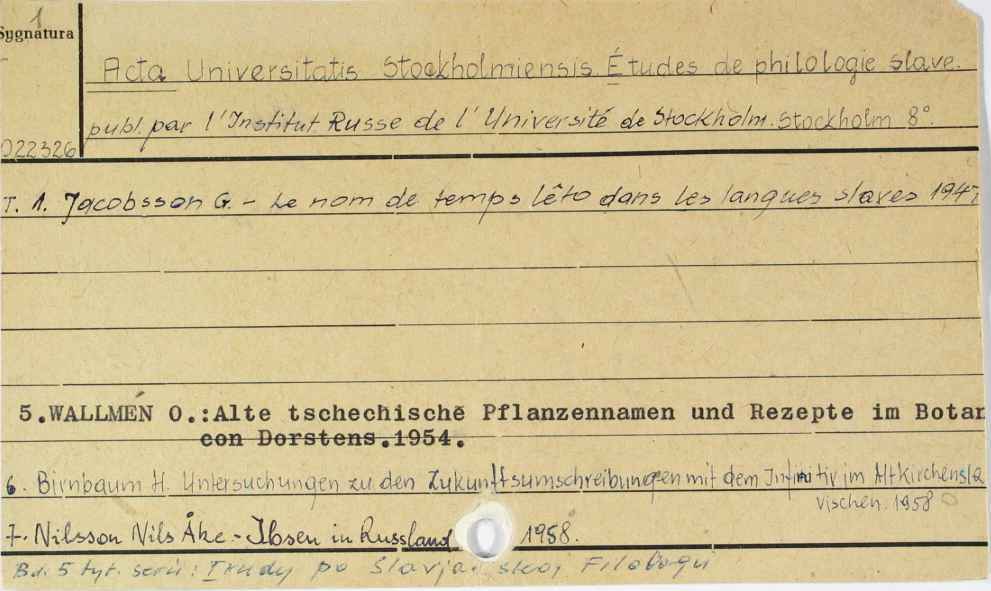 1
Sygnatura
Acta Universitatis Stockholmiensis. Études de philologie slave.
publ. par l'Institut Russe de l'Université de Stockholm. Stockholm 8°.
022326
T. 1. Jacobsson G. - Le nom de temps lêto dans les langues slaves 1947
5.WALLMÉN O.:Alte tschechische Pflanzennamen und Rezepte im Botan
con Dorstens.1954.
6. Birnbaum H. Untersuchungen zu den Zukunftsumschreibungen mit dem Infinitiv im Altkirchensla
vischen. 1958
7. Nilsson Nils Åke - Ibsen in Russland 1958.
Bd. 5 tyt. serii: Trudy po Slavjanskoj Filologii